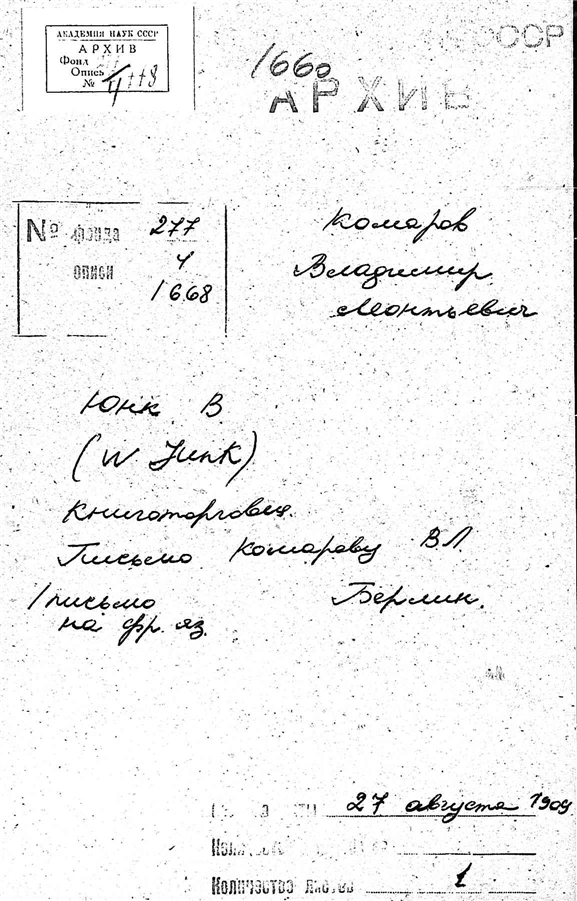 АКАДЕМИЯ НАУК СССР
АРХИВ
Фонд
Опись 4
№
СССР
1660
АРХИВ
№ фонда 277
описи 4
1668
Комаров
Владимир
Леонтьевич
Юнк В
(W Junk)
Книготорговец.
Письмо Комарову ВЛ
1 письмо Берлин.
на фр. яз.
27 августа 1909
Количество листов 1